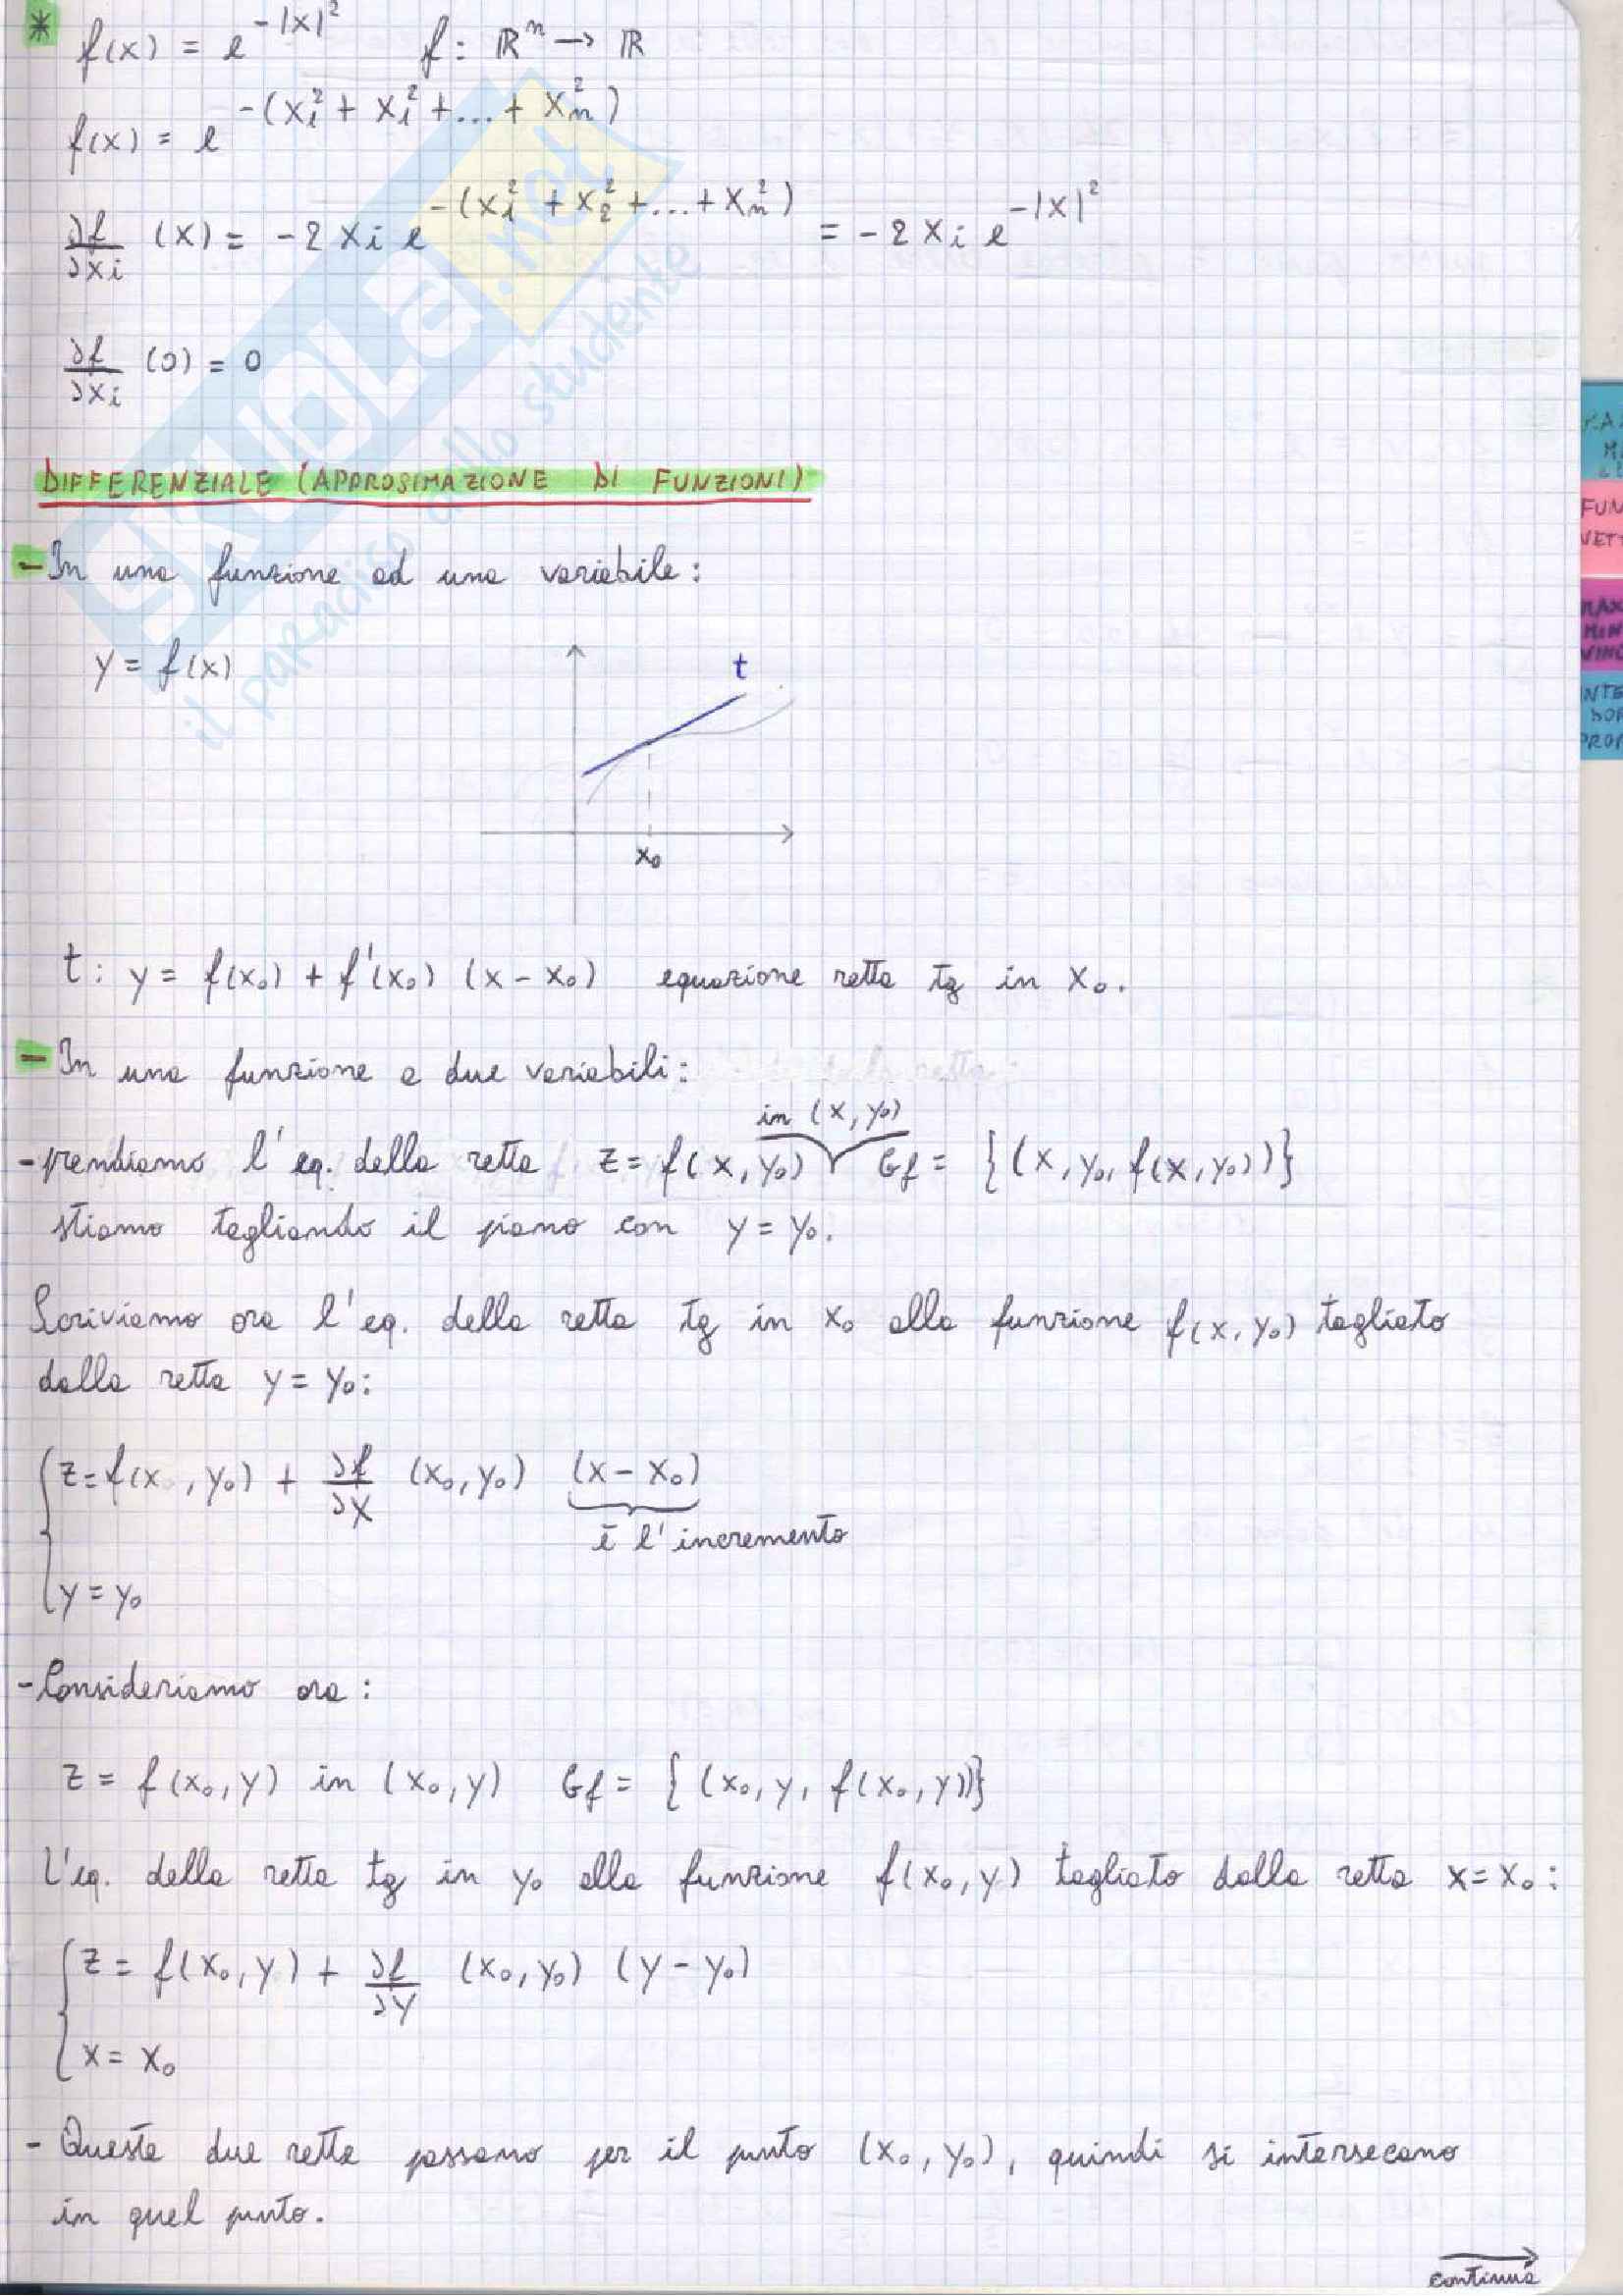 * f(x) = e^{-|x|^2} f: ℝ^n → ℝ
f(x) = e^{-(x_1^2 + x_i^2 + ... + x_n^2)}
∂f/∂x_i (x) = -2 x_i e^{-(x_1^2 + x_2^2 + ... + x_n^2)} = -2 x_i e^{-|x|^2}
∂f/∂x_i (0) = 0
DIFFERENZIALE (APPROSIMAZIONE DI FUNZIONI)
- In una funzione ad una variabile:
y = f(x)
t
x_0
t: y = f(x_0) + f'(x_0) (x - x_0) equazione retta tg in x_0.
- In una funzione a due variabili:
in (x, y_0)
- prendiamo l'eq. della retta z = f(x, y_0) Gf = {(x, y_0, f(x, y_0))}
stiamo tagliando il piano con y = y_0.
Scriviamo ora l'eq. della retta tg in x_0 alla funzione f(x, y_0) tagliato
dalla retta y = y_0:
z = f(x_0, y_0) + ∂f/∂x (x_0, y_0) (x - x_0)
è l'incremento
y = y_0
- Consideriamo ora:
z = f(x_0, y) in (x_0, y) Gf = {(x_0, y, f(x_0, y))}
L'eq. della retta tg in y_0 alla funzione f(x_0, y) tagliato dalla retta x = x_0:
z = f(x_0, y) + ∂f/∂y (x_0, y_0) (y - y_0)
x = x_0
- Queste due rette passano per il punto (x_0, y_0), quindi si intersecano
in quel punto.
continua
SKUOLA.net
il paradiso dello studente
FUN
VETT
MAX
MIN
VINC
INTE
DOP
PROP